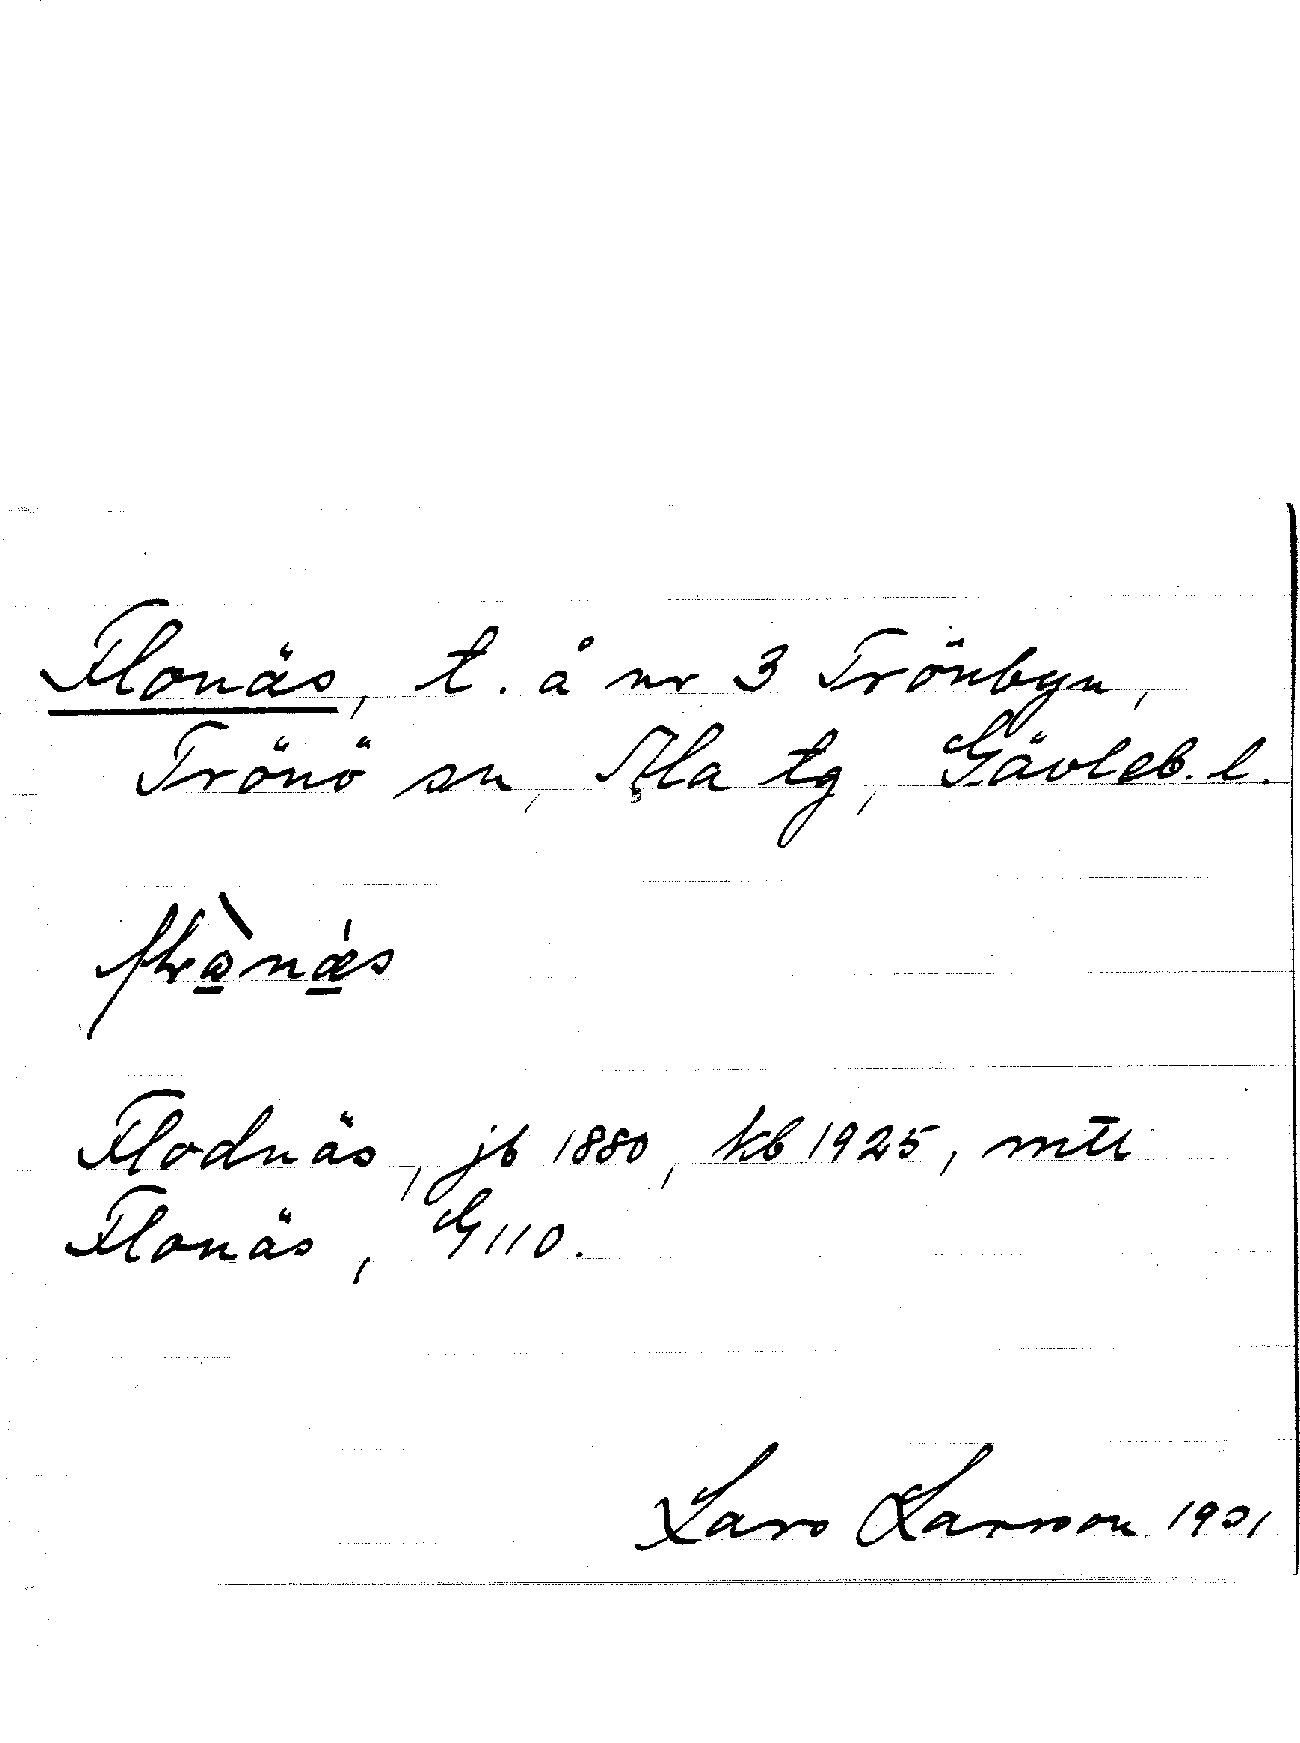 Flonäs, t. å nr 3 Trönbyn,
Trönö sn, Ala tg, Gävleb. l.
Flodnäs, jb 1880, kb 1925, mtl
Flonäs, G 110.
Lars Larsson 1931